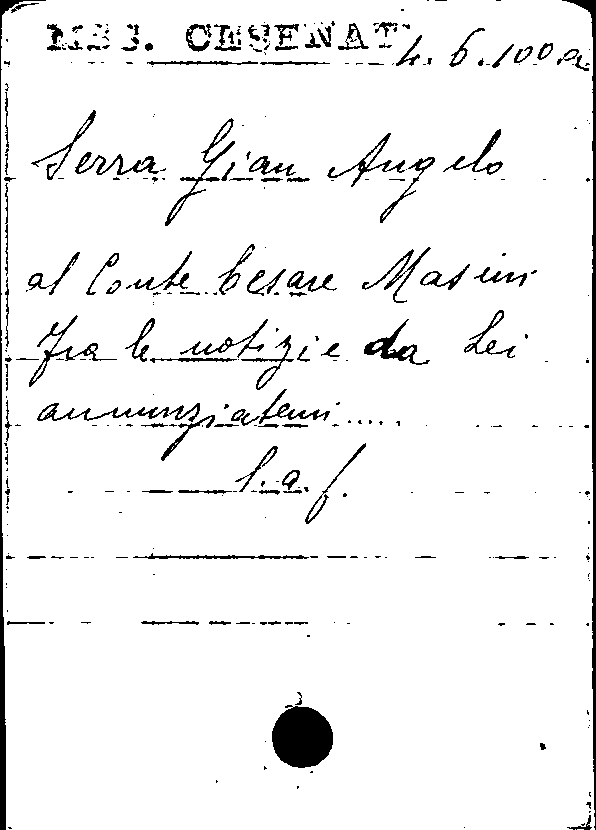 MSS. CESENAT
4.6.100a
Serra Gian Angelo
al Conte Cesare Masini
Fra le notizie da Lei
annunziatemi.....
l.a.f.